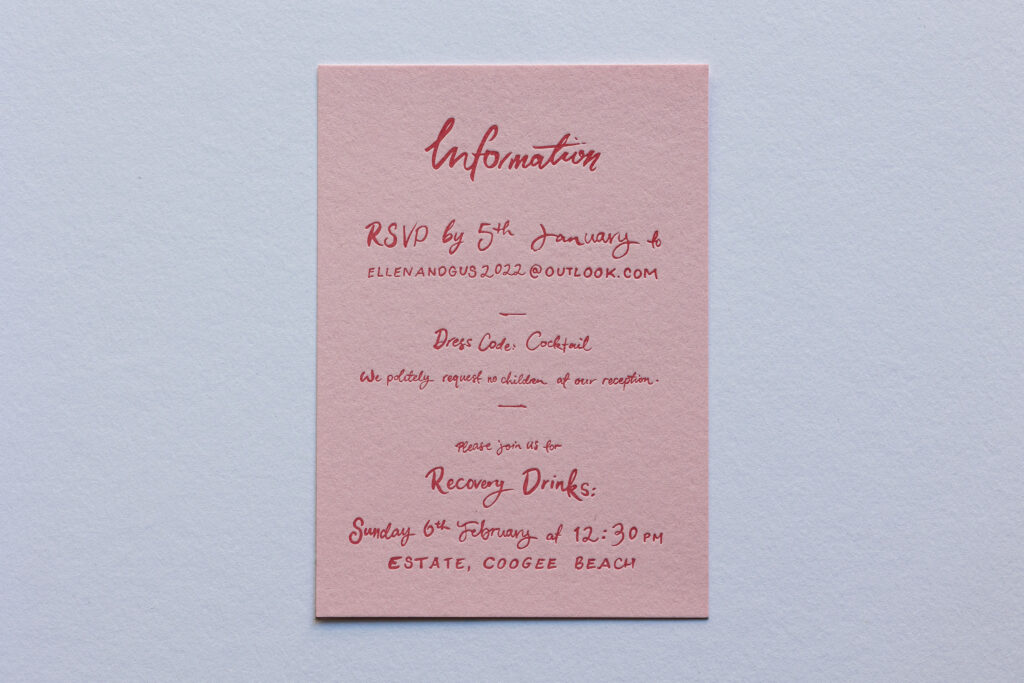 Information
RSVP by 5th January to
ELLENANDGUS2022@OUTLOOK.COM
Dress Code: Cocktail
We politely request no children at our reception.
Please join us for
Recovery Drinks:
Sunday 6th February at 12:30PM
ESTATE, COOGEE BEACH